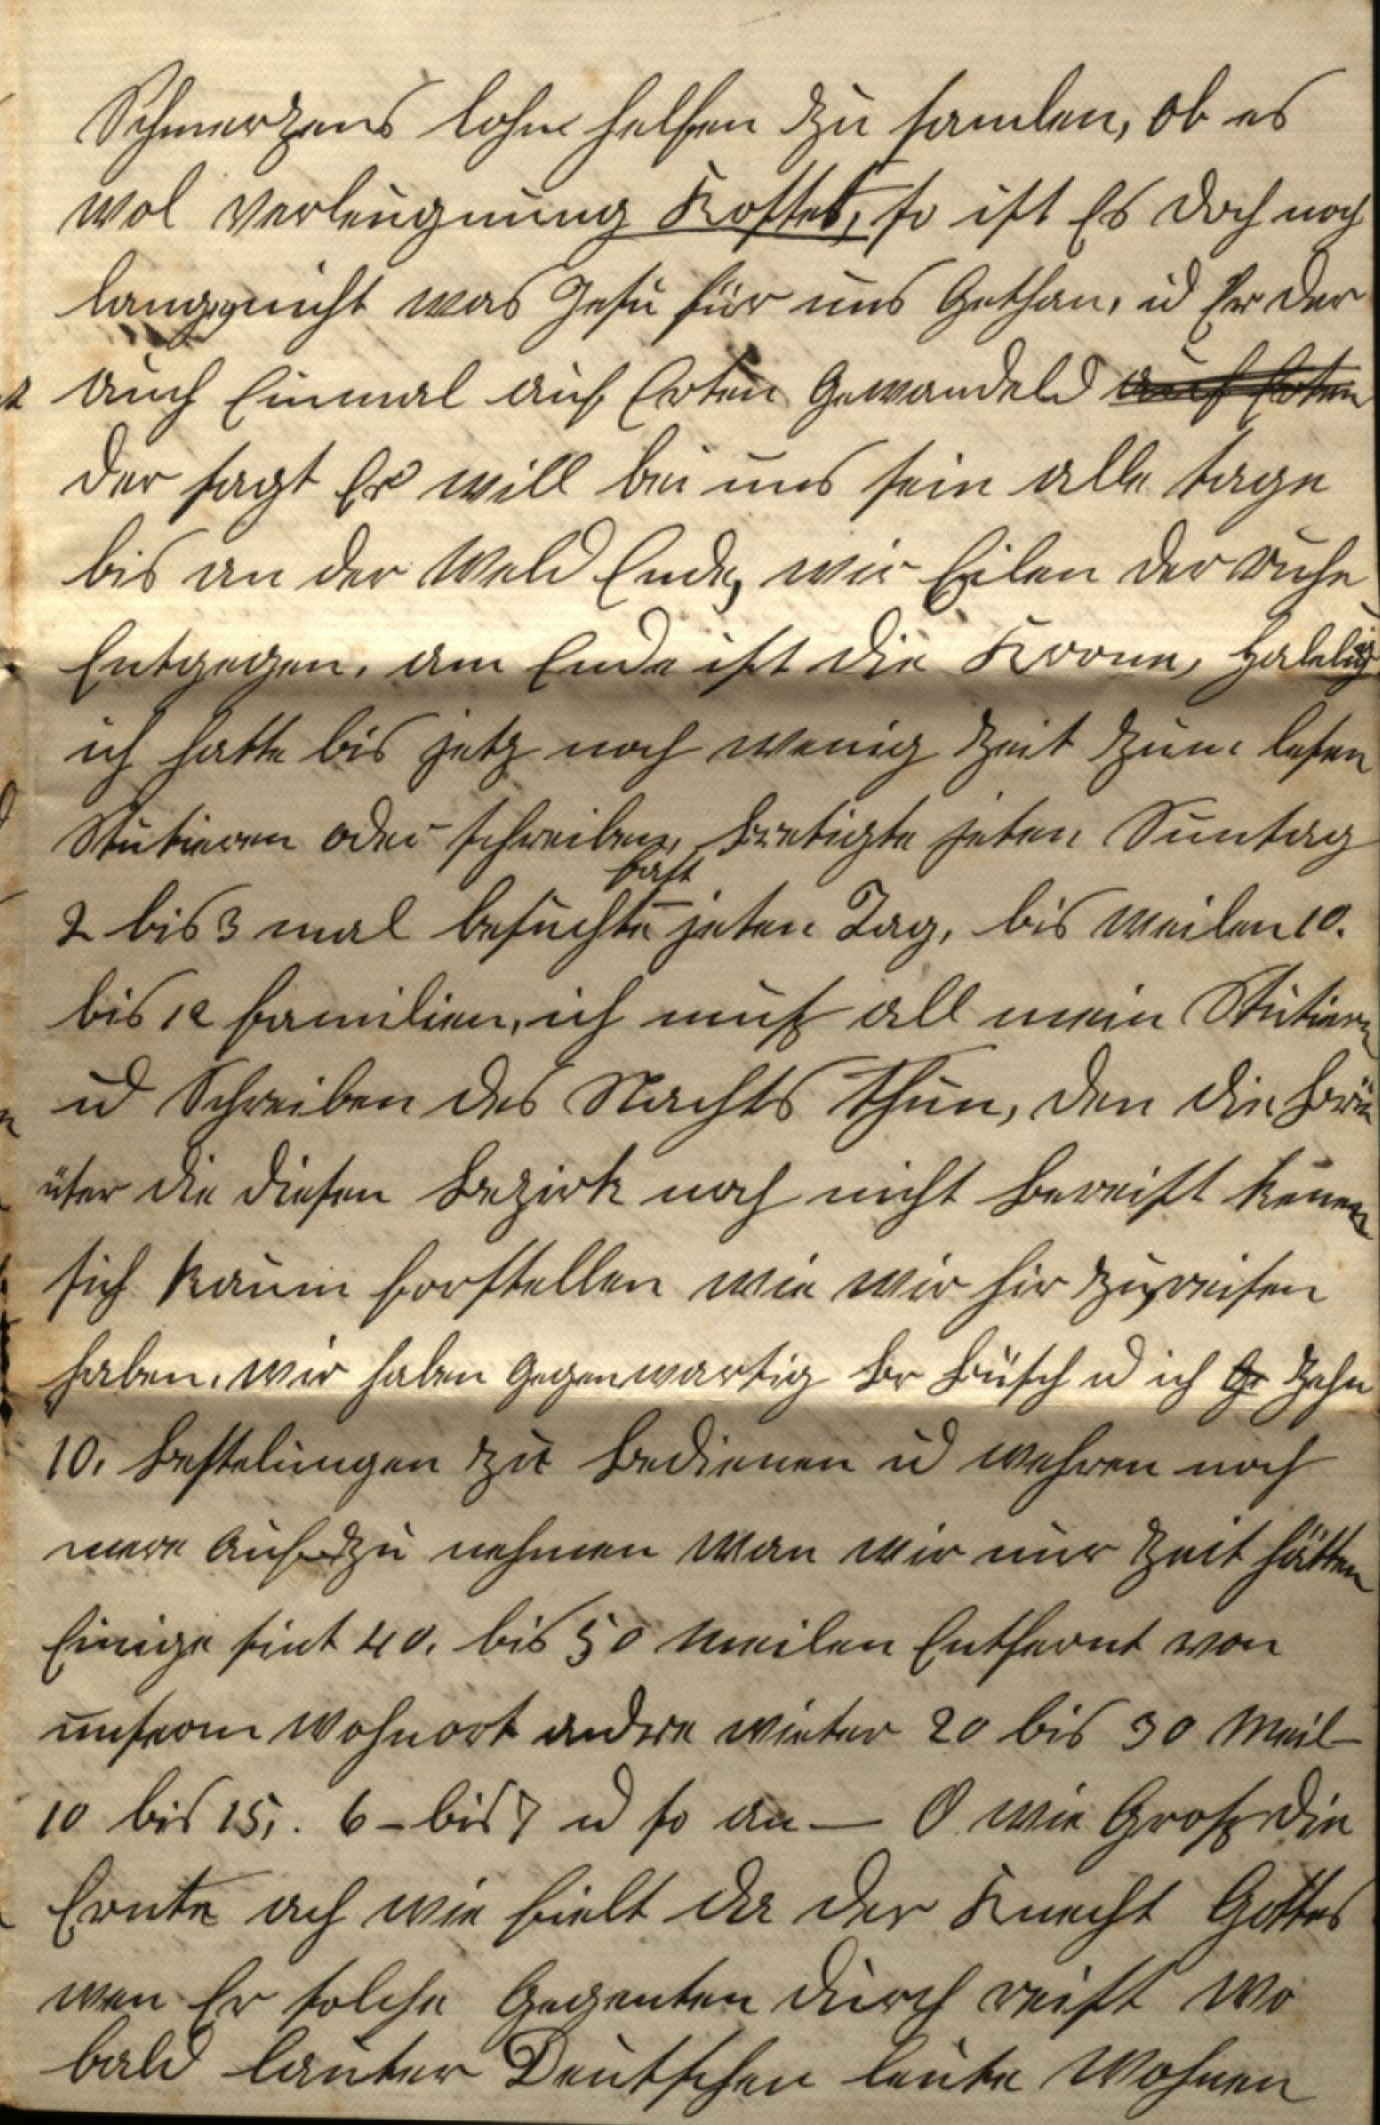 Schmerzens lohn helfen zu samlen, ob es
wol verleugnung Kostet, so ist Es doch noch
lange nicht was Jesu für uns Gethan, ud Er der
auch Einmal auf Erten Gewandeld auf Erten
der sagt Er will bei uns sein alle tage
bis an der Weld Ende, wir Eilen der ruhe
Entgegen, am Ende ist die Krone, Haleluj
ich hatte bis jetz noch wenig Zeit zum lesen
Stutieren oder schreiben, bretigte jeten Suntag
fast
2 bis 3 mal besuchte jeten Tag, bis weilen 10.
bis 12 familien, ich muß all mein Stutieren
ud Schreiben des Nachts thun, den die Brü
üter die diesen Bezirk noch nicht bereist könen
sich kaum forstellen wie wir hir zu reisen
haben, wir haben gegenwartig Br Büsch u ich zehn
10. Bestelungen zu bedienen ud wehren noch
mere auf zu nehmen wan wir nur Zeit hätten
Einige sint 40. bis 50 Meilen Entfernt von
unserm Wohnort andere wieter 20 bis 30 Meil
10 bis 15,. 6 - bis 7 ud so an — O wie Groß die
Ernte ach wie fielt da der Knecht Gottes
wen Er solche Gegenten durch reist wo
bald lauter Deutschen leute Wohnen